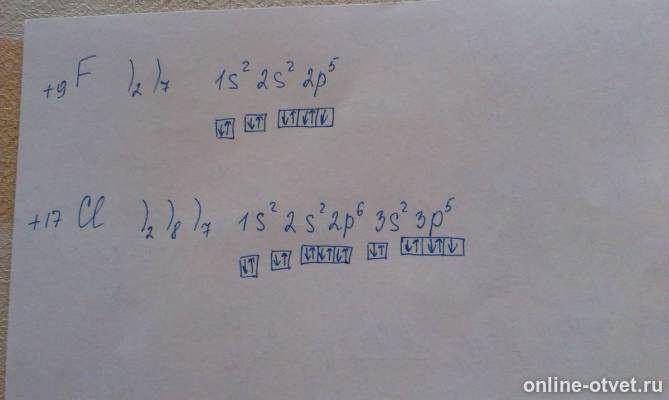 +9 F )2 )7 1s² 2s² 2p⁵
↓↑ ↓↑ ↓↑ ↓↑ ↓
+17 Cl )2 )8 )7 1s² 2s² 2p⁶ 3s² 3p⁵
↓↑ ↓↑ ↓↑ ↓↑ ↓↑ ↓↑ ↓↑ ↓↑ ↓
online-otvet.ru